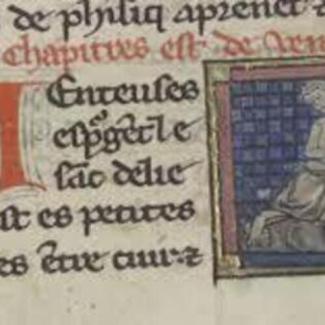 de philiq aprenet
chapitres est de ven
Enteuses
espgẽt le
sãc delie
st es petites
es ẽtre cuir ⁊